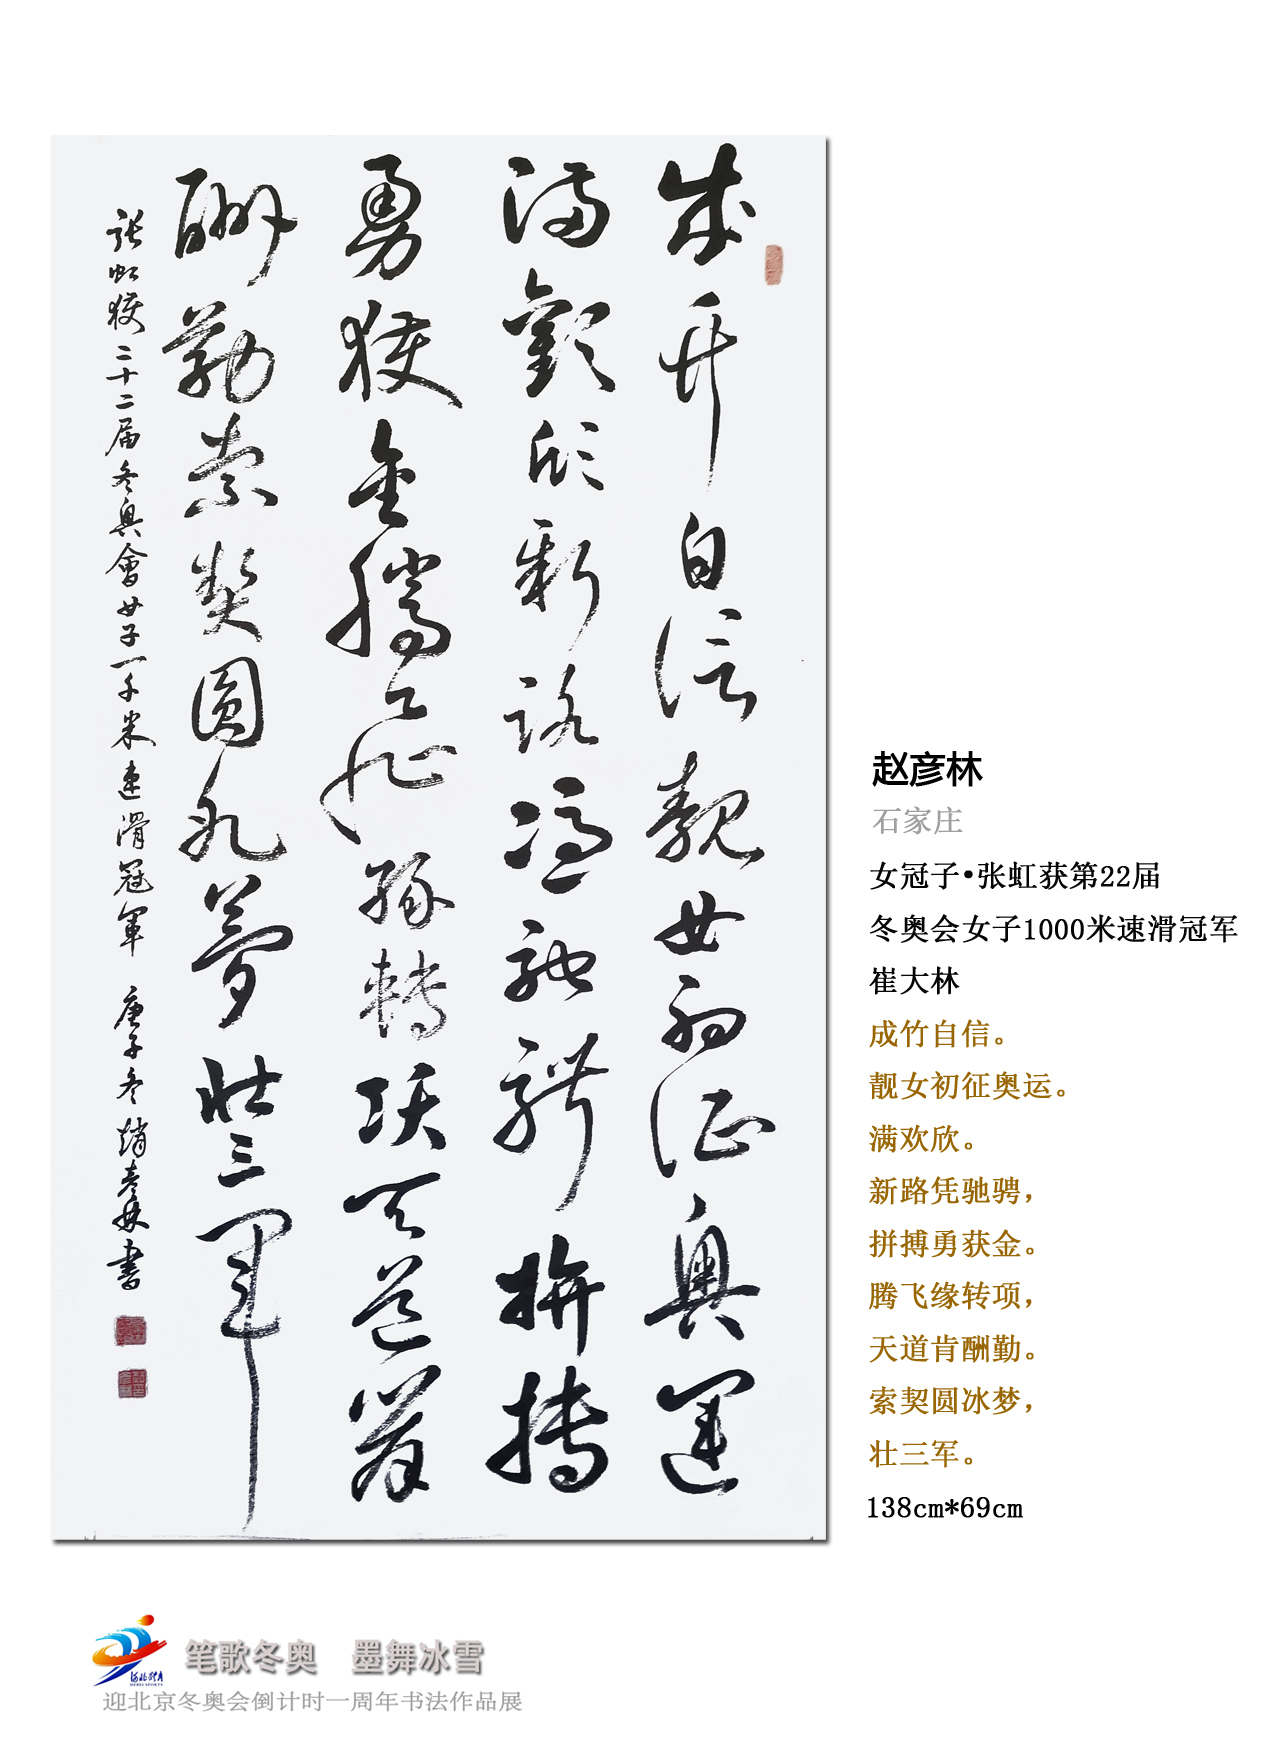 成竹自信靓女初征奥運
滿歡欣新路憑馳騁拼搏
勇獲金騰飛緣轉項天道肯
酬勤索契圆冰夢壮三軍
張虹獲二十二届冬奥會女子一千米速滑冠軍 庚子冬趙彦林書
赵彦林
石家庄
女冠子•张虹获第22届
冬奥会女子1000米速滑冠军
崔大林
成竹自信。
靓女初征奥运。
满欢欣。
新路凭驰骋，
拼搏勇获金。
腾飞缘转项，
天道肯酬勤。
索契圆冰梦，
壮三军。
138cm*69cm
河北体育
HEBEI SPORTS
笔歌冬奥 墨舞冰雪
迎北京冬奥会倒计时一周年书法作品展